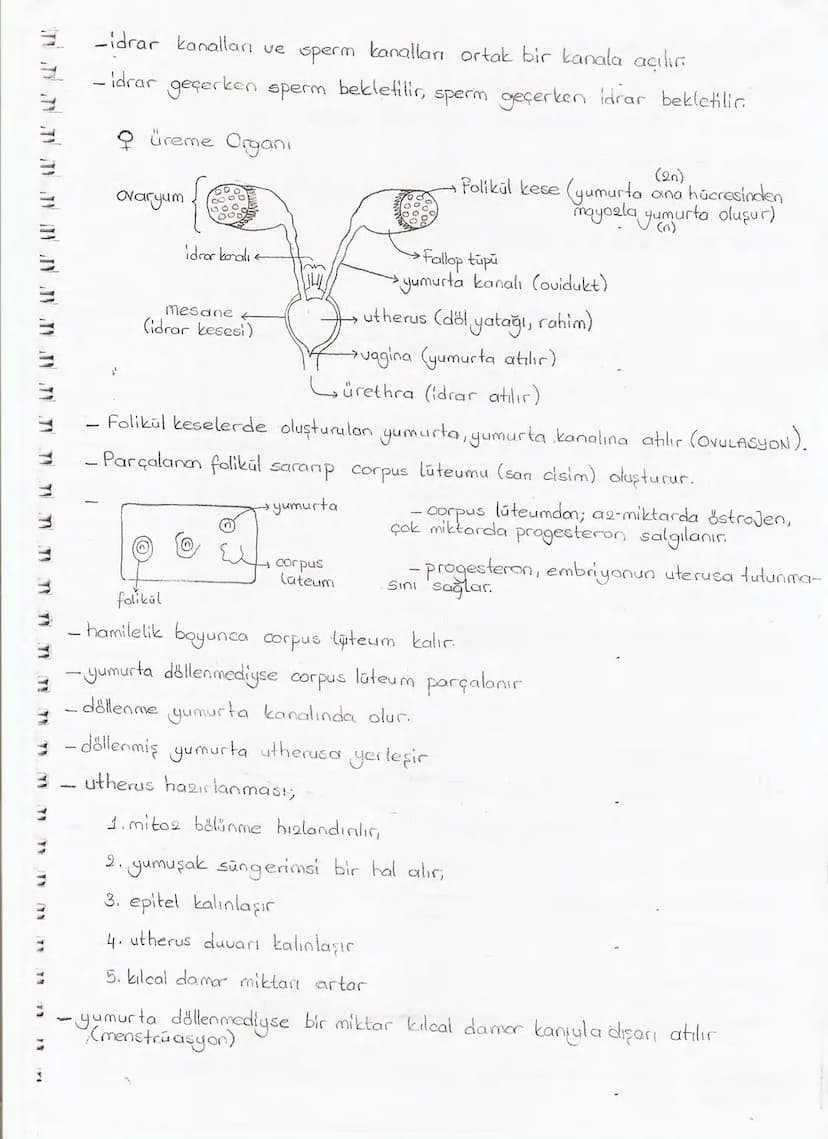 -idrar kanalları ve sperm kanalları ortak bir kanala açılır.
-idrar geçerken sperm bekletilir, sperm geçerken idrar bekletilir.
♀ üreme Organı
ovaryum
Folikül kese (yumurta ana hücresinden
(2n)
mayozla yumurta oluşur)
(n)
idrar kanalı
Fallop tüpü
yumurta kanalı (ovidukt)
mesane
(idrar kesesi)
utherus (döl yatağı, rahim)
vagina (yumurta atılır)
ürethra (idrar atılır)
- Folikül keselerde oluşturulan yumurta, yumurta kanalına atılır (OVULASYON).
- Parçalanan folikül sararıp corpus lüteumu (sarı cisim) oluşturur.
-
yumurta
n
n
n
corpus
luteum
folikül
- corpus lüteumdan; az-miktarda östrojen,
çok miktarda progesteron salgılanır.
- progesteron, embriyonun uterusa tutunma-
sını sağlar.
- hamilelik boyunca corpus lüteum kalır.
- yumurta döllenmediyse corpus lüteum parçalanır
- döllenme yumurta kanalında olur.
- döllenmiş yumurta utherusa yerleşir
- utherus hazırlanması;
1. mitoz bölünme hızlandırılır,
2. yumuşak süngerimsi bir hal alır,
3. epitel kalınlaşır
4. utherus duvarı kalınlaşır
5. kılcal damar miktarı artar
- yumurta döllenmediyse bir miktar kılcal damar kanıyla dışarı atılır
(menstrüasyon)